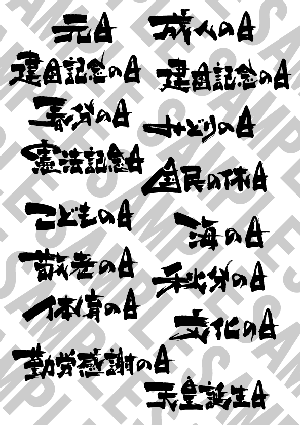 元日
成人の日
建国記念の日
建国記念の日
春分の日
みどりの日
憲法記念日
国民の休日
こどもの日
海の日
敬老の日
秋分の日
体育の日
文化の日
勤労感謝の日
天皇誕生日
SAMPLE